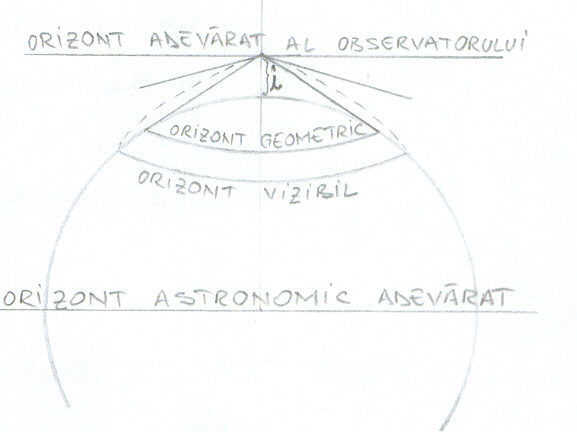 ORIZONT ADEVĂRAT AL OBSERVATORULUI
i
ORIZONT GEOMETRIC
ORIZONT VIZIBIL
ORIZONT ASTRONOMIC ADEVĂRAT